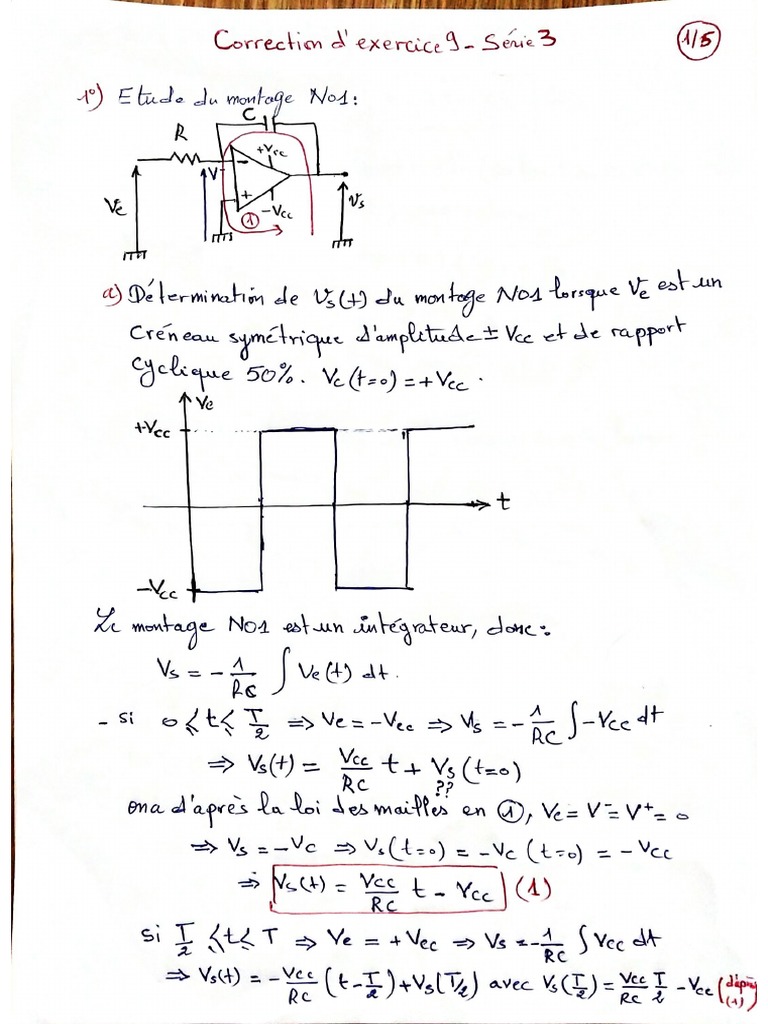 Correction d'exercice 9 - Série 3
1/5
1°) Etude du montage No1:
C
R
+Vcc
V⁻
-
+
Ve
-Vcc
Vs
①
a) Détermination de Vs(t) du montage No1 lorsque Ve est un
créneau symétrique d'amplitude ± Vcc et de rapport
cyclique 50%. Vc(t=0) = +Vcc.
Ve
+Vcc
t
-Vcc
Le montage No1 est un intégrateur, donc:
Vs = - 1/RC ∫ Ve(t) dt.
- si 0 ≤ t ≤ T/2 ⇒ Ve = -Vcc ⇒ Vs = - 1/RC ∫ -Vcc dt
⇒ Vs(t) = Vcc/RC t + Vs(t=0)
??
ona d'après la loi des mailles en ①, Ve = V⁻ = V⁺ = 0
⇒ Vs = -Vc ⇒ Vs(t=0) = -Vc(t=0) = -Vcc
⇒ Vs(t) = Vcc/RC t - Vcc (1)
si T/2 ≤ t ≤ T ⇒ Ve = +Vcc ⇒ Vs = - 1/RC ∫ Vcc dt
⇒ Vs(t) = - Vcc/RC (t - T/2) + Vs(T/2) avec Vs(T/2) = Vcc/RC T/2 - Vcc (d'après (1)